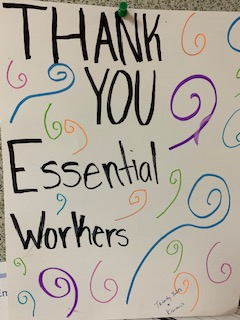 THANK
YOU
Essential
Workers